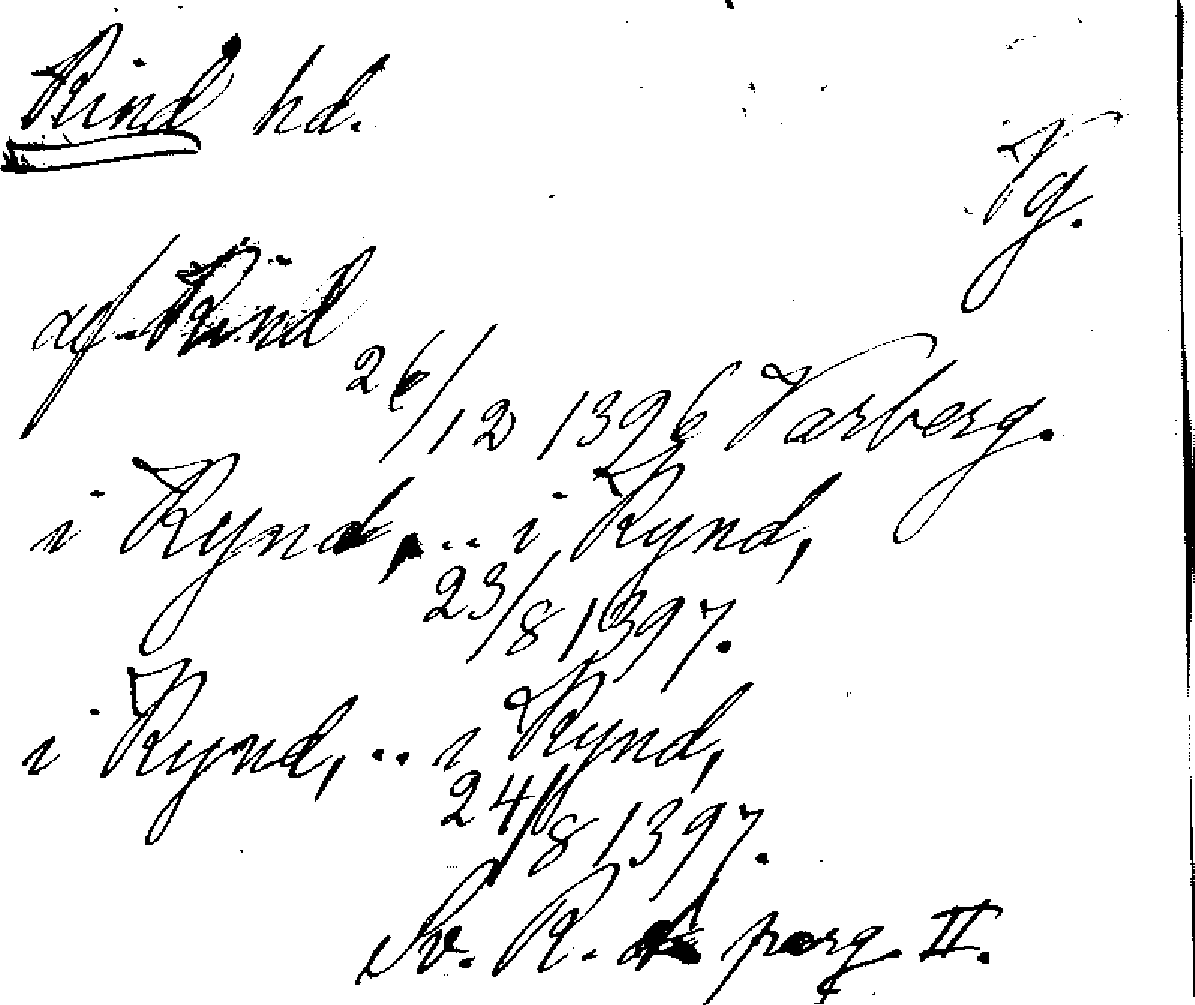 Kind hd.
Vg.
af Kind
26/12 1396 Varberg.
i Kynd, .. i Kynd,
23/8 1397.
i Kynd, .. i Kynd,
24/8 1397.
Sv. R. A perg. II.